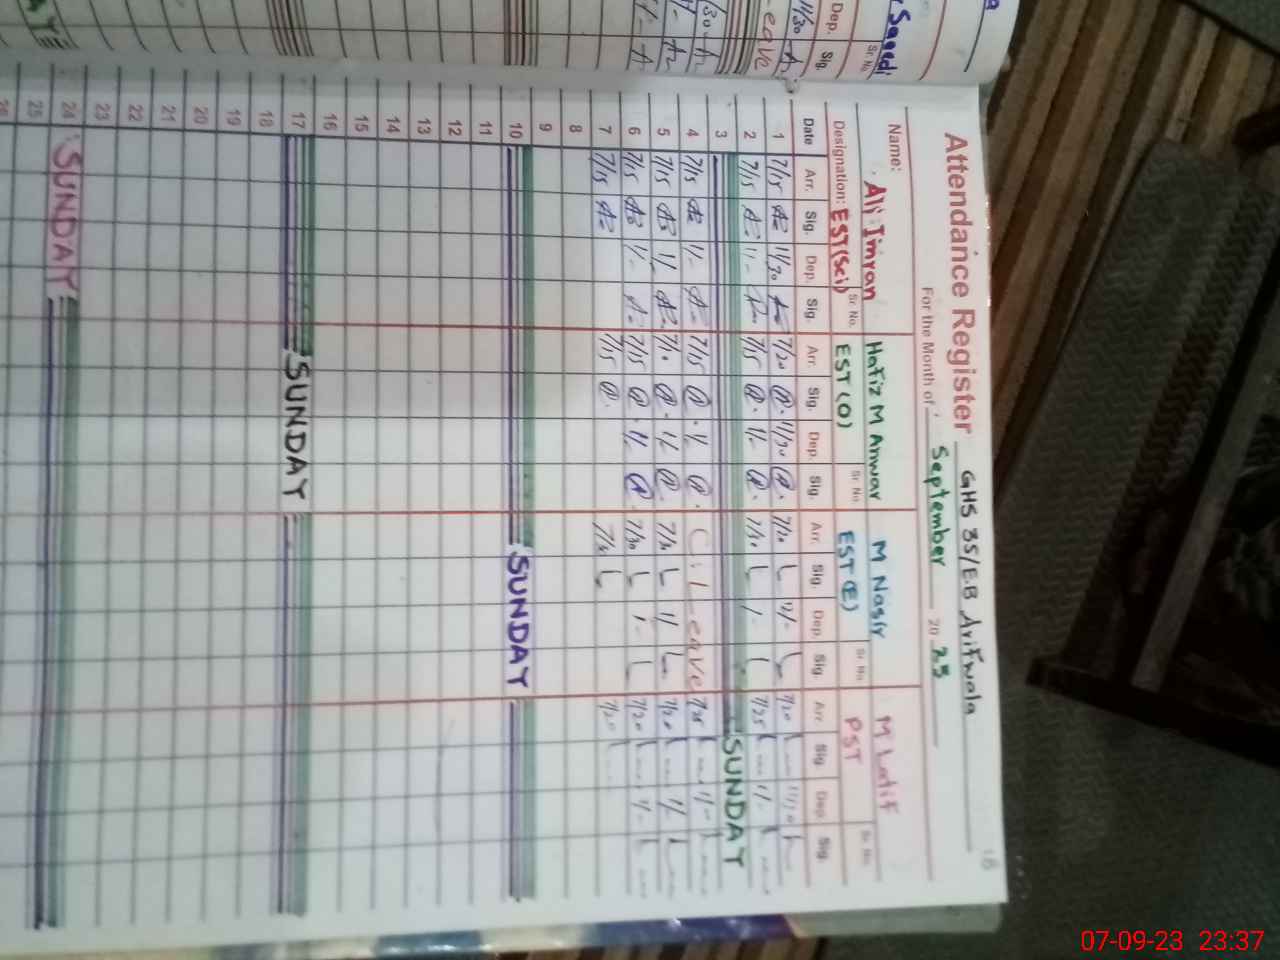 Attendance Register GHS 35/E.B Arifwala
For the Month of September 20 23
Name: Ali Imran Hafiz M Anwar M Nasir M Latif
Designation: EST(Sci) Sr. No. EST (O) Sr. No. EST (E) Sr. No. PST Sr. No.
Date Arr. Sig. Dep. Sig. Arr. Sig. Dep. Sig. Arr. Sig. Dep. Sig. Arr. Sig. Dep. Sig.
1 7/15 11/30 7/20 11/30 7/20 11/- 7/20 11/30
2 7/15 11/- 7/15 1/- 7/30 1/- 7/25 1/-
3 SUNDAY
4 7/15 1/- 7/15 1/- C. Leave 7/25 1/-
5 7/15 1/- 7/10 1/- 7/30 1/- 7/20 1/-
6 7/15 1/- 7/15 1/- 7/30 1/- 7/20 1/-
7 7/15 7/15 7/20
8
9
10 SUNDAY
11
12
13
14
15
16
17 SUNDAY
18
19
20
21
22
23
24 SUNDAY
25
26
Saeedi
Sr. No.
Dep. Sig.
11/30
eave
07-09-23 23:37